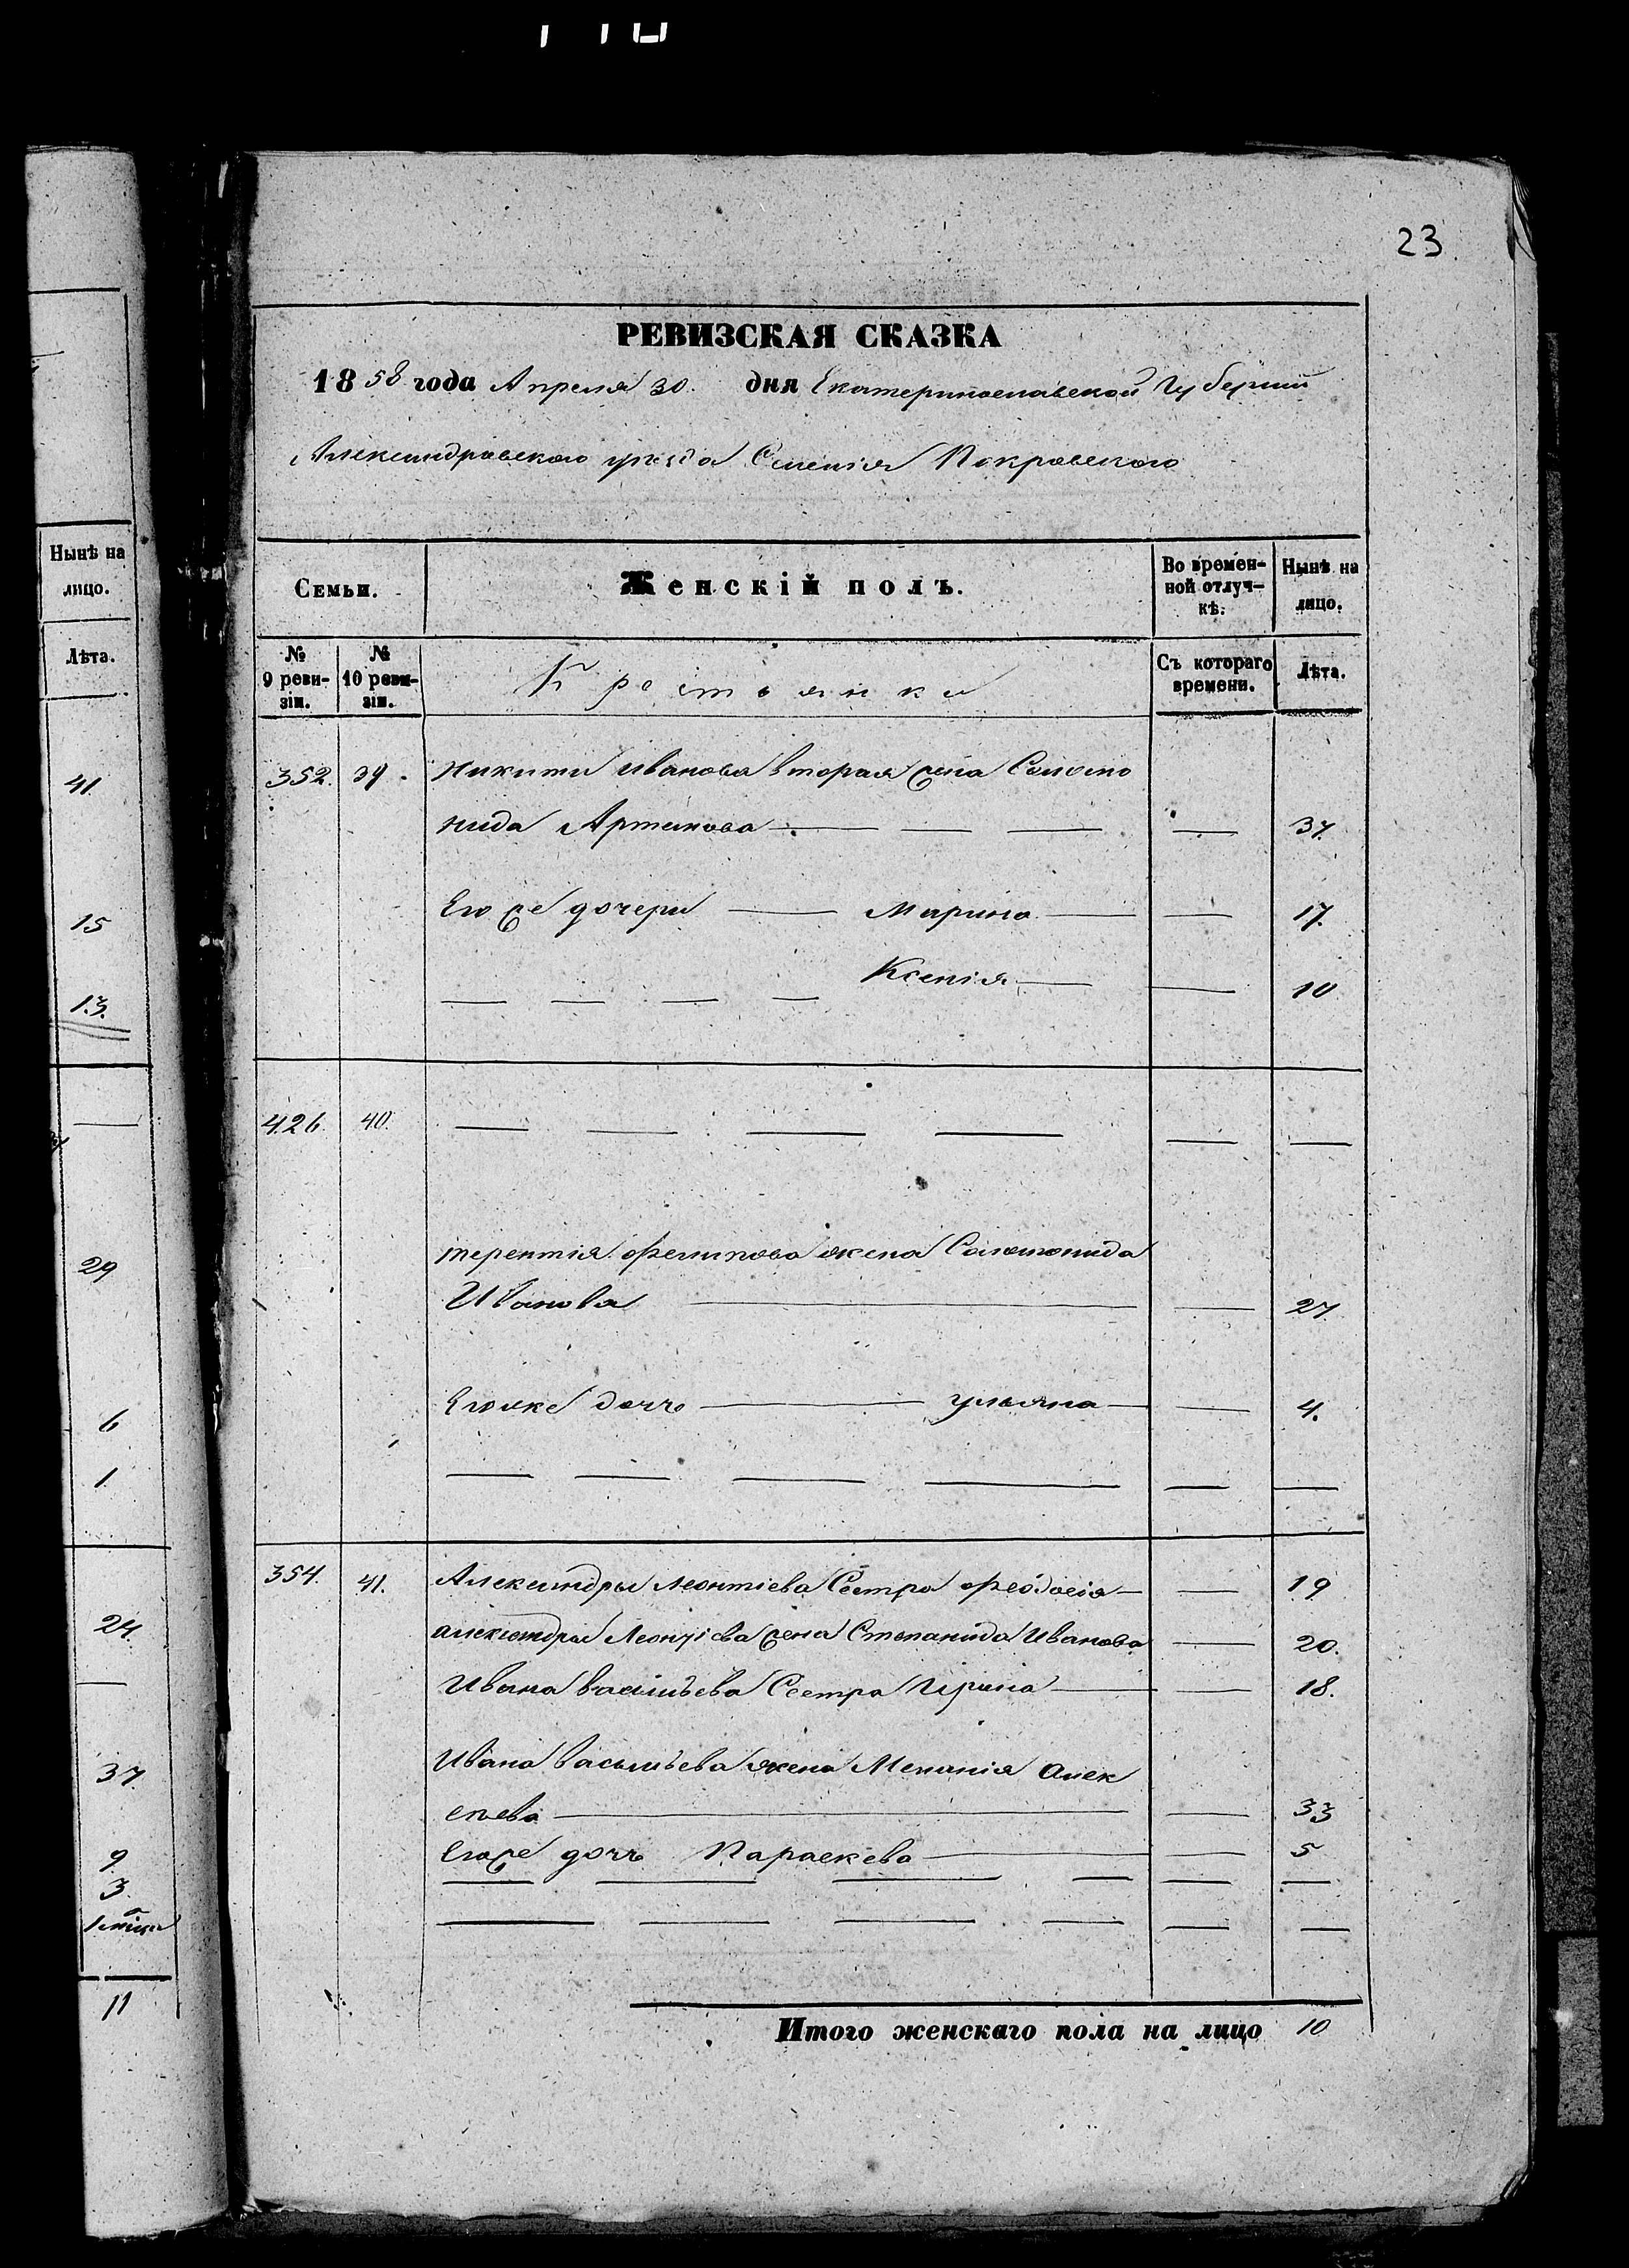 23
РЕВИЗСКАЯ СКАЗКА
1858 года Апреля 30. дня Екатеринославской Губерний
Александравского уезда Селения Покровского
Нынѣ на лицо.
Лѣта.
41
15
13.
29
6
1
24.
37
9
3.
11
Семьи.
Женскій полъ.
Во времен-ной отлуч-кѣ.
Нынѣ на лицо.
№ 9 реви-зіи.
№ 10 реви-зіи.
Крестьянки
Съ котораго времени.
Лѣта.
352. 39. Никиты Иванова вторая жена Соломо
нида Артемова — — — — 37.
Егоже дочери — Марина — — 17.
— — — — Ксенія — — 10
426. 40. — — — — — —
терентія Филипова жена Соломонида
Иванова — — 27.
Егоже дочь — ульяна — — 4.
— — — — — —
354. 41. Александры Леонтіева Сестра Феодосія — — 19
александры Леонтіева жена Степанида Иванова — 20.
Ивана васильева Сестра Ирина — — 18.
Ивана васильева жена Меланія Алек
сѣева — — 33
Егоже дочь Параскева — — 5
— — — — — —
— — — — — —
Итого женскаго пола на лицо 10